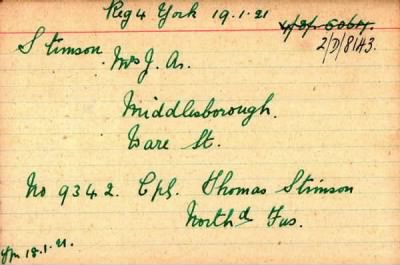 Reg 4 York 19.1.21
2/D/8143.
Stimson
Mrs J. A.
Middlesborough.
Ware St.
No 9342. Cpl. Thomas Stimson
North'd Fus.
18.1.21.